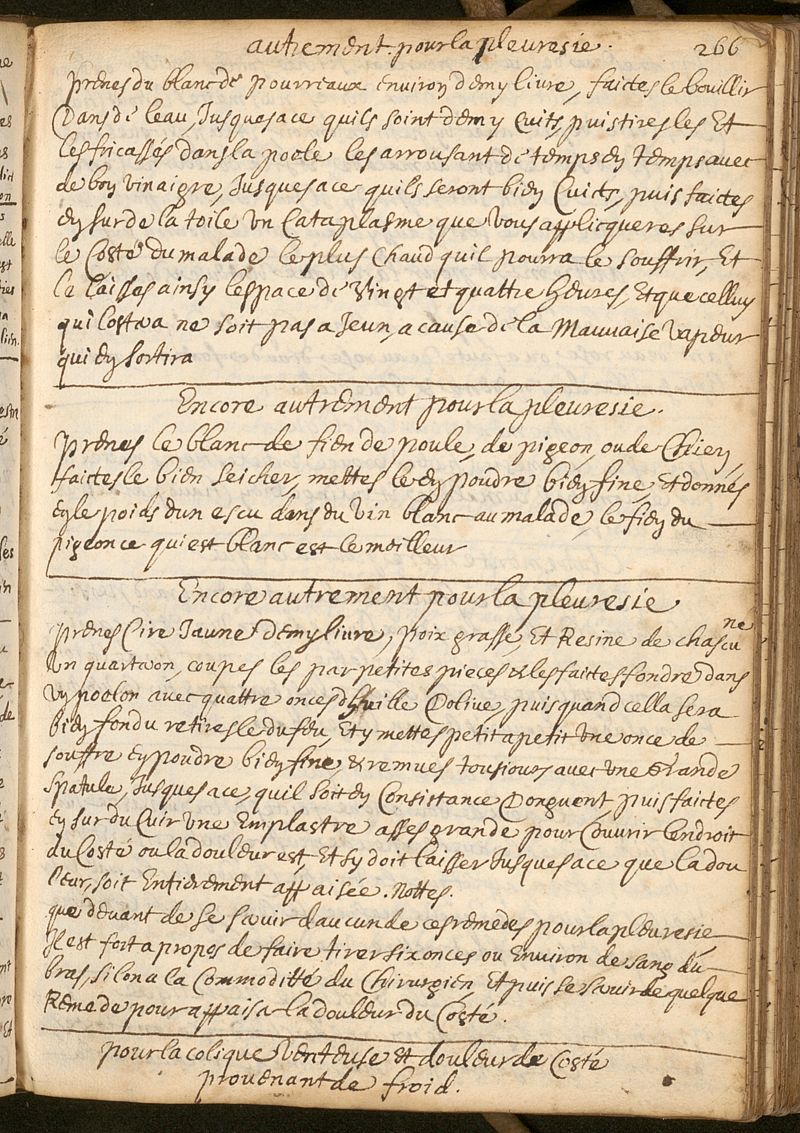 autrement pour la pleuresie. 266
Prenes du blanc de pourreaux environ demy livre, faictes le bouillir
Dans de leau, Jusques a ce quils soint demy Cuits, puis tires les Et
les fricassés dans la poele les arrousant de temps en temps avec
de bon vinaigre, Jusques a ce quils seront bien Cuits, puis faictes
en sur de la toile un Cataplasme que vous applicqueres sur
le Costé du malade le plus Chaud quil pourra le souffrir, Et
le laisses ainsy lespace de vingt et quattre heures, Et que celluy
qui lostera ne soit pas a Jeun, a cause de la Mauvaise vapeur
qui en sortira
Encore autrement pour la pleuresie.
Prenes le blanc de fien de poule, de pigeon, ou de Chien,
faictes le bien seicher, mettes le en poudre bien fine, Et donnés
en le poids dun escu dans du vin blanc au malade, le fien du
pigeon ce qui est blanc est le meilleur
Encore autrement pour la pleuresie
Prenes Cire Jaune demy livre, poix grasse, Et Resine de chascune
Un quarteron, coupes les par petites pieces & les faites fondre dans
un poelon avec quattre onces dhuille Dolive, puis quand cella sera
bien fondu retires le du feu, Et y mettes petit a petit une once de
souffre en poudre bien fine, & remues tousiours avec une Grande
Spatule, Jusques a ce, quil soit en Consistance Donguent, puis faictes
en sur du Cuir une Emplastre asses grande pour Couvrir lendroit
du Costé ou la douleur est, Et sy doit laisser Jusques a ce que la dou
leur, soit Entierement appaisée. Nottes.
que devant de se servir daucun de ces remedes pour la pleuresie
Il est fort a propos de faire tirer six onces ou Environ de sang du
bras si lon a la Commoditté du Chirurgien Et puis se servir de quelque
Remede pour appaiser la douleur du Costé.
pour la colique Venteuse et douleur de Costé
provenant de froid.